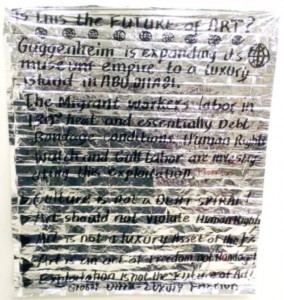 Is this the FUTURE of ART?
Guggenheim is expanding its
museum empire to a luxury
island in ABU DHABI.
The Migrant workers labor in
130° heat and essentially Debt
Bondage conditions. Human Rights
Watch and Gulf Labor are investig
ating this exploitation.
Culture is not a DEBT SPIRAL!
Art should not violate Human Rights
Art is not a Luxury Asset of the 1%
Art is an art of Freedom not Bondage!
Exploitation is not the Future of Art!
Global Ultra Luxury Faction